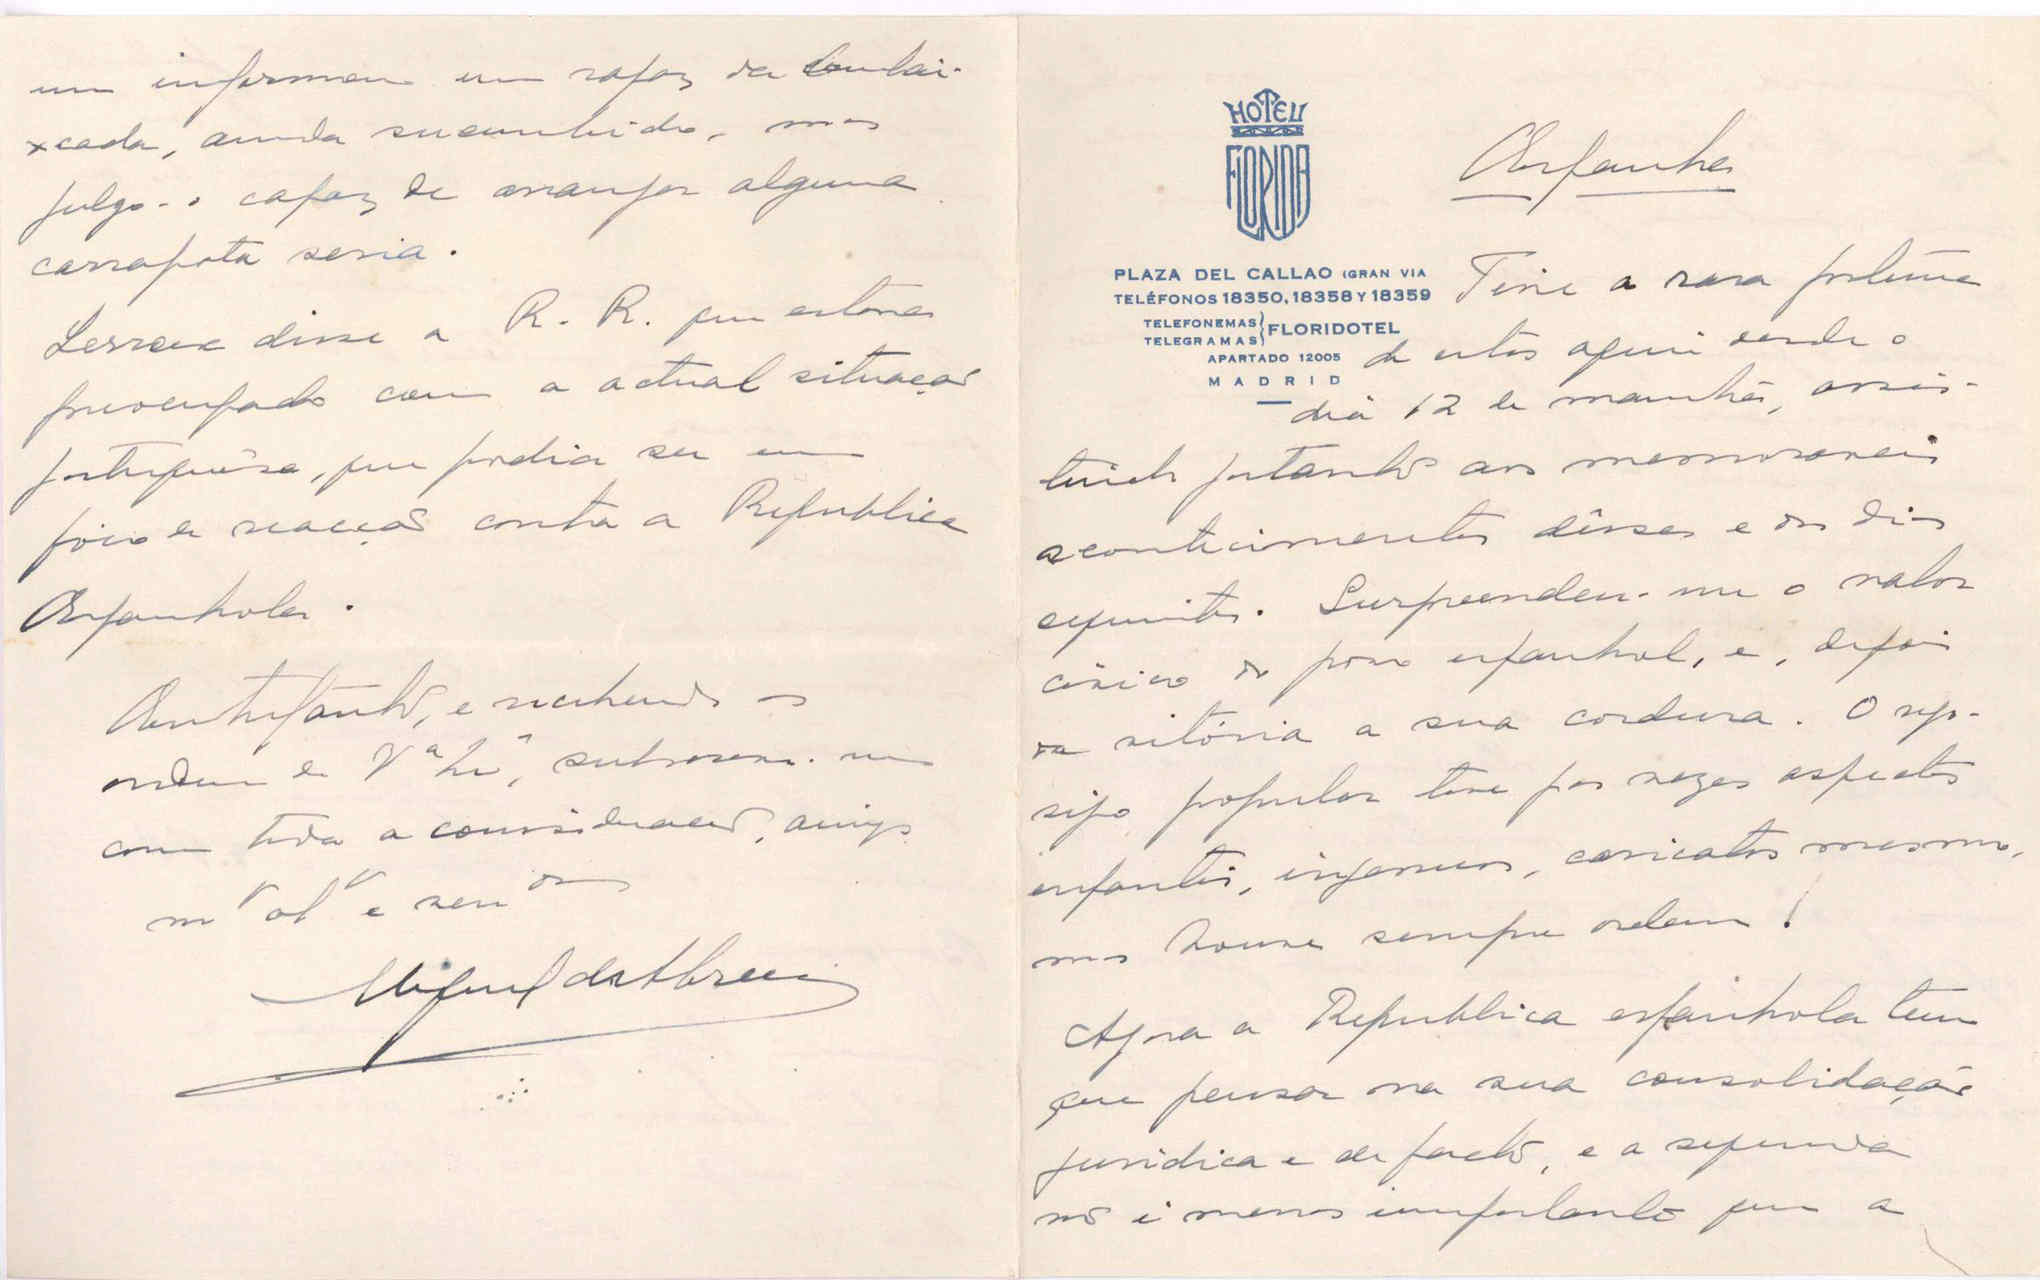 um informou um rapaz da Embai-
xada, ainda sucumbido, mas
julgo-o capaz de arranjar alguma
carrapata seria.
Lerroux disse a R. R. que estava
preocupado com a actual situação
portuguêsa, que podia ser um
fóco de reacção contra a Republica
Espanhola.
Entretanto, e recebendo as
ordens de V.ª Ex.ª, subscrevo-me
com toda a consideração, amigo
m.to ob.do e
Miguel de Abreu
HOTEL
FLORIDA
PLAZA DEL CALLAO (GRAN VIA
TELÉFONOS 18350, 18358 Y 18359
TELEFONEMAS
TELEGRAMAS
FLORIDOTEL
APARTADO 12005
MADRID
Espanha
Tive a rara fortuna
de estar aqui desde o
dia 12 de manhã, assis-
tindo portanto aos memoraveis
acontecimentos dêsse e dos dias
seguintes. Surpreendeu-me o valor
civico do povo espanhol, e, depois
da vitória a sua cordura. O rego-
sijo popular teve por vezes aspectos
infantis, ingenuos, caricatos mesmo,
mas houve sempre ordem!
Agora a Republica espanhola tem
que pensar na sua consolidação
juridica e de facto, e a segunda
não é menos importante que a